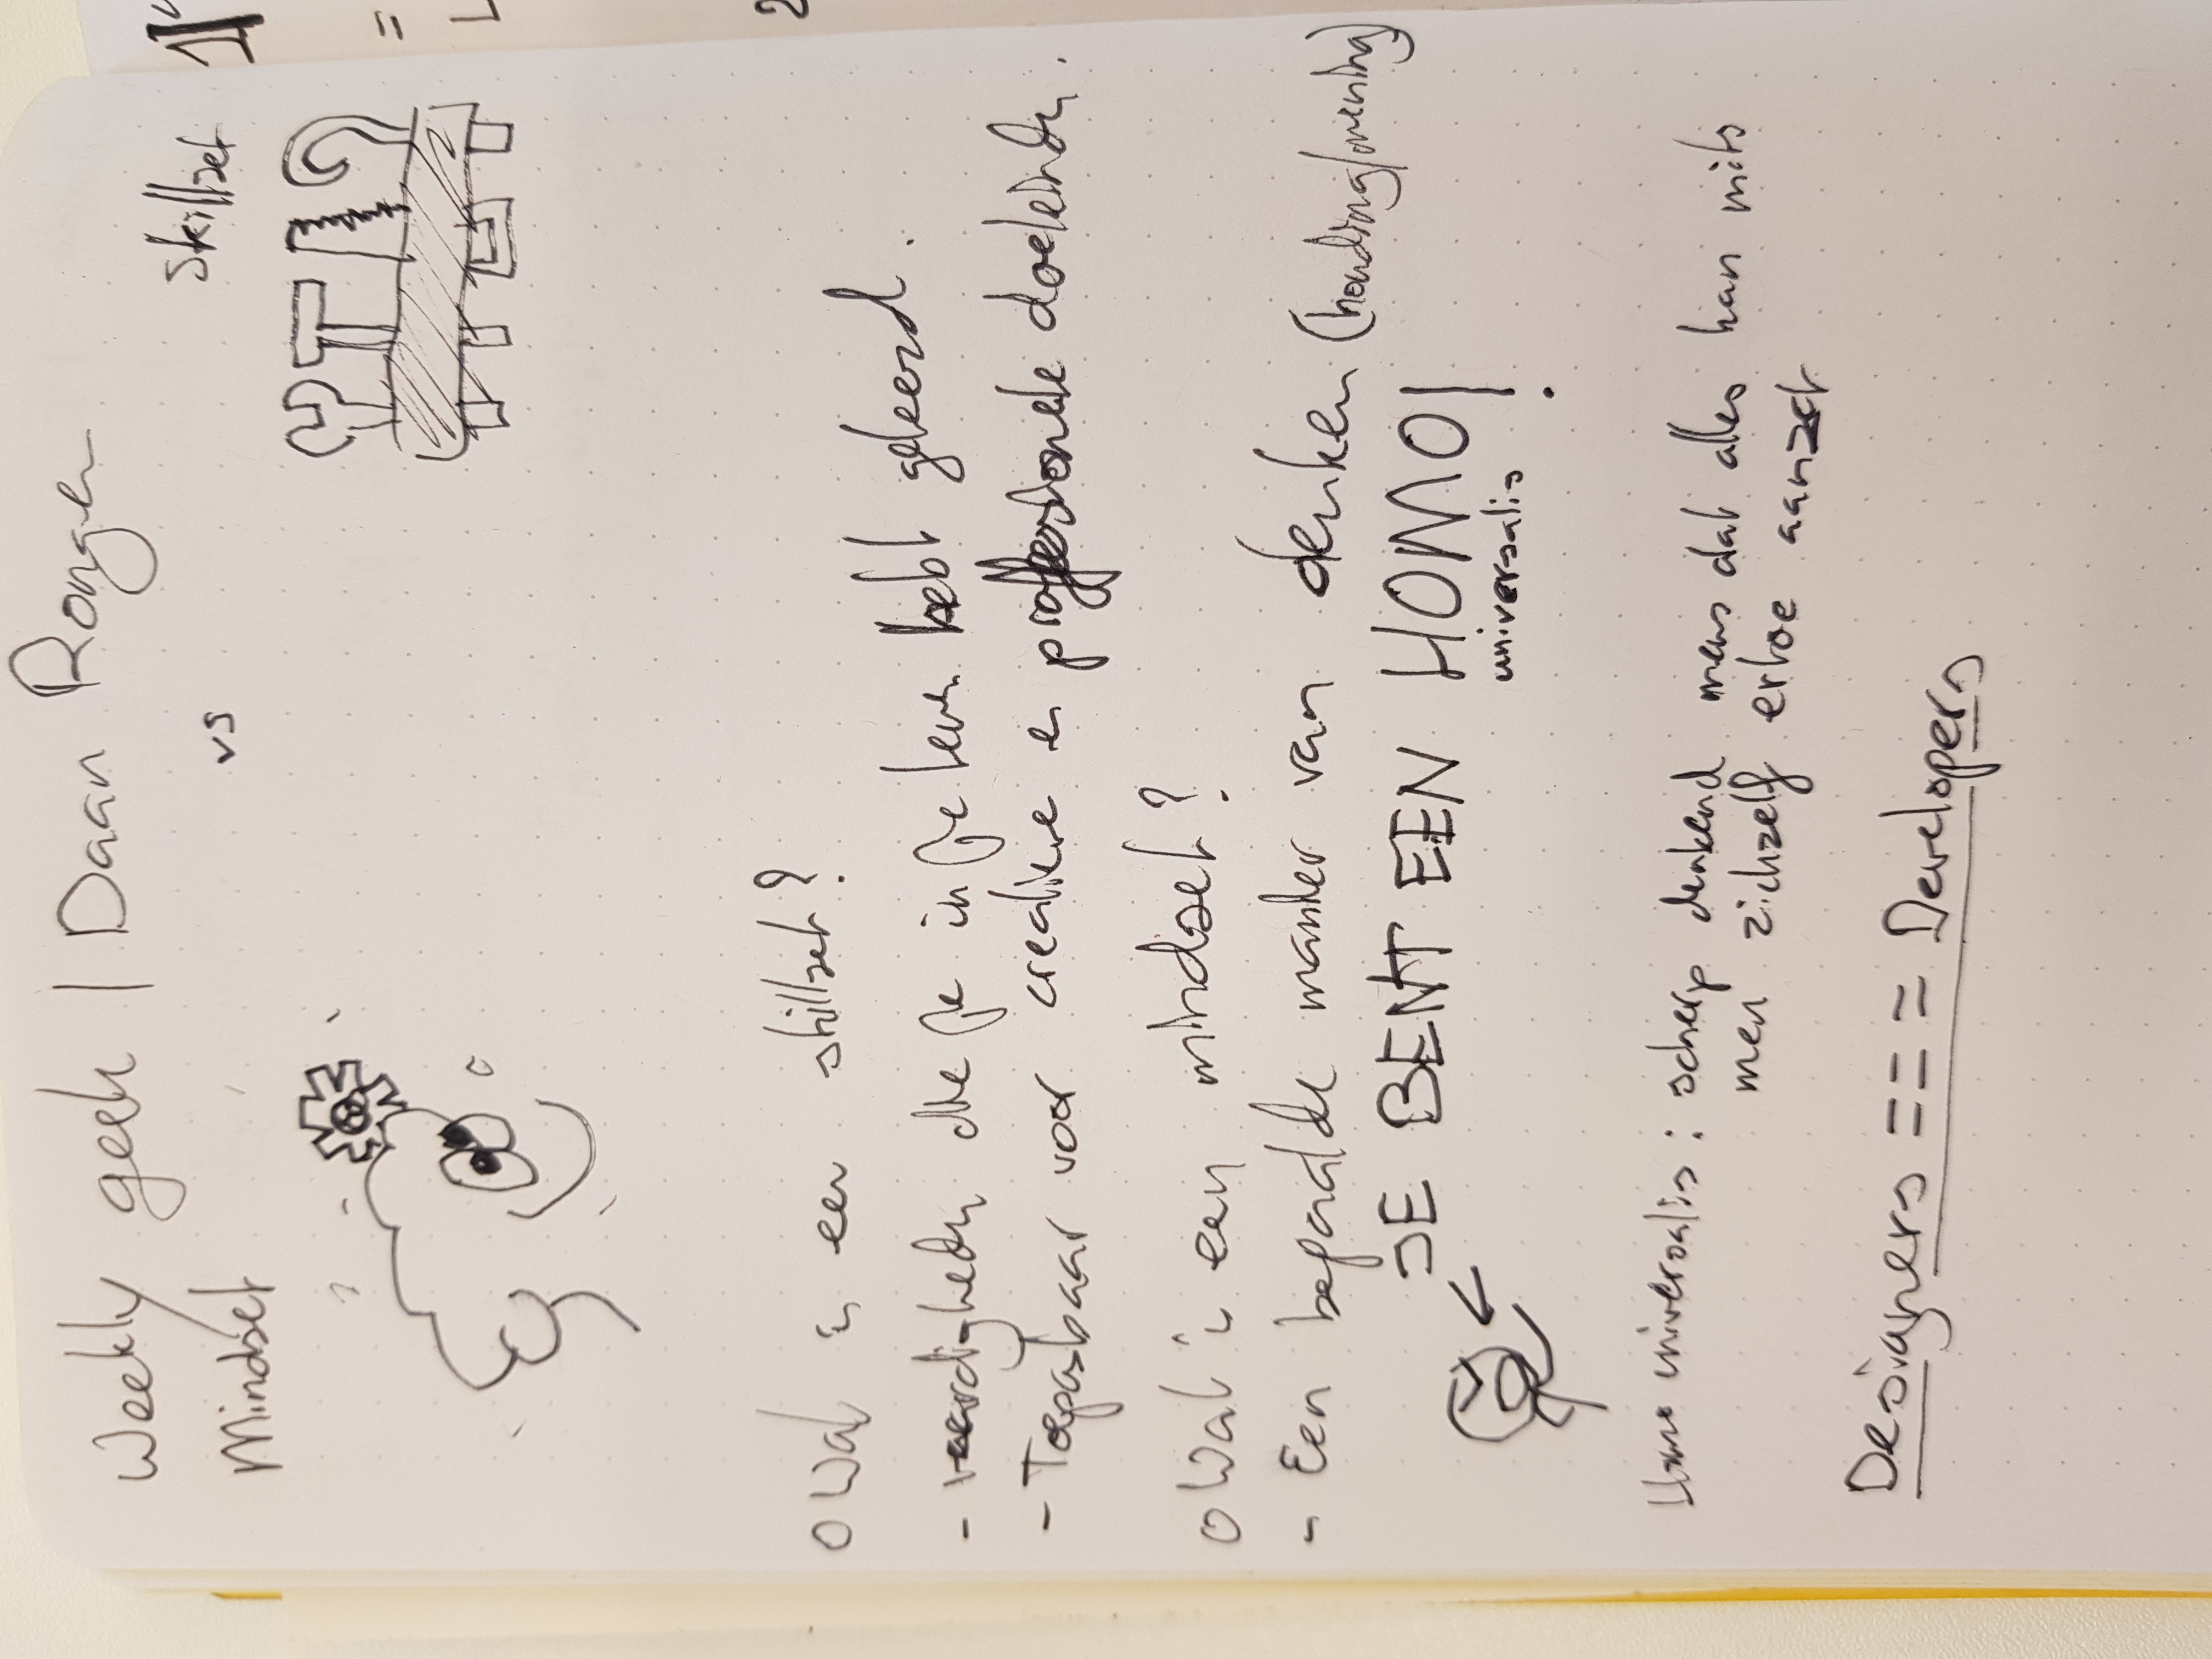 Weekly geek | Daan Rongen
Mindset vs Skillset
o Wat is een skillset?
- vaardigheden die je in je leven hebt geleerd.
- Toepasbaar voor creatieve en proffesionele doeleinden.
o Wat is een mindset?
- Een bepaalde manier van denken (houding/mening)
JE BENT EEN HOMO!
universalis
Homo universalis: scherp denkend mens dat alles kan mits
men zichzelf ertoe aanzet
Designers === Developers